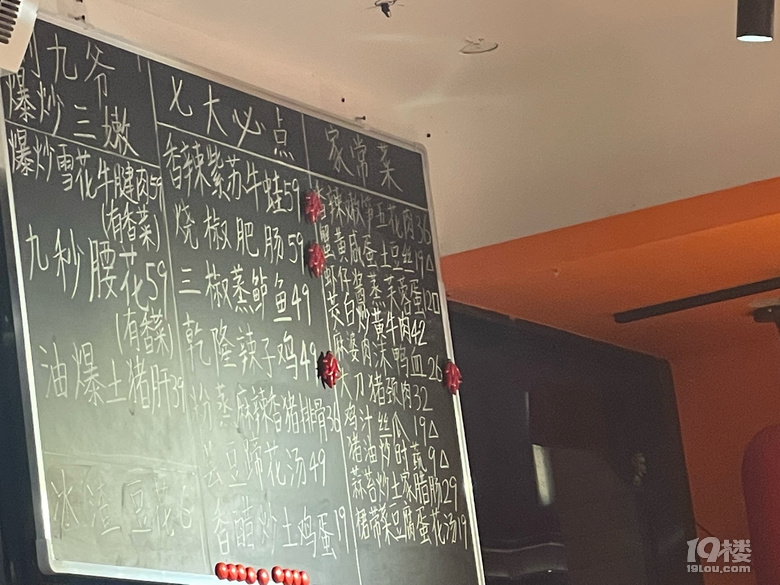 九爷
爆炒三嫩
爆炒雪花牛腱肉59
(有香菜)
九秒腰花59
(有香菜)
油爆土猪肝39
冰渣豆花6
七大必点
香辣紫苏牛蛙59
烧椒肥肠59
三椒蒸鲈鱼49
乾隆辣子鸡49
粉蒸麻辣香猪排骨36
芸豆蹄花汤49
香醋炒土鸡蛋19
家常菜
香辣嫩笋五花肉36
蟹黄咸蛋土豆丝19△
蒸芙蓉蛋12
茭白炒黄牛肉42
麻婆肉沫鸭血26
大刀猪颈肉32
鸡汁丝瓜19△
猪油炒时蔬9△
蒜苔炒土家腊肠29
裙带菜豆腐蛋花汤19
19楼
19lou.com